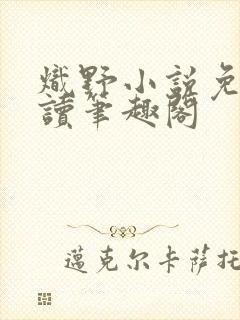 熾野小說免
讀筆趣閣
邁克尔卡萨托